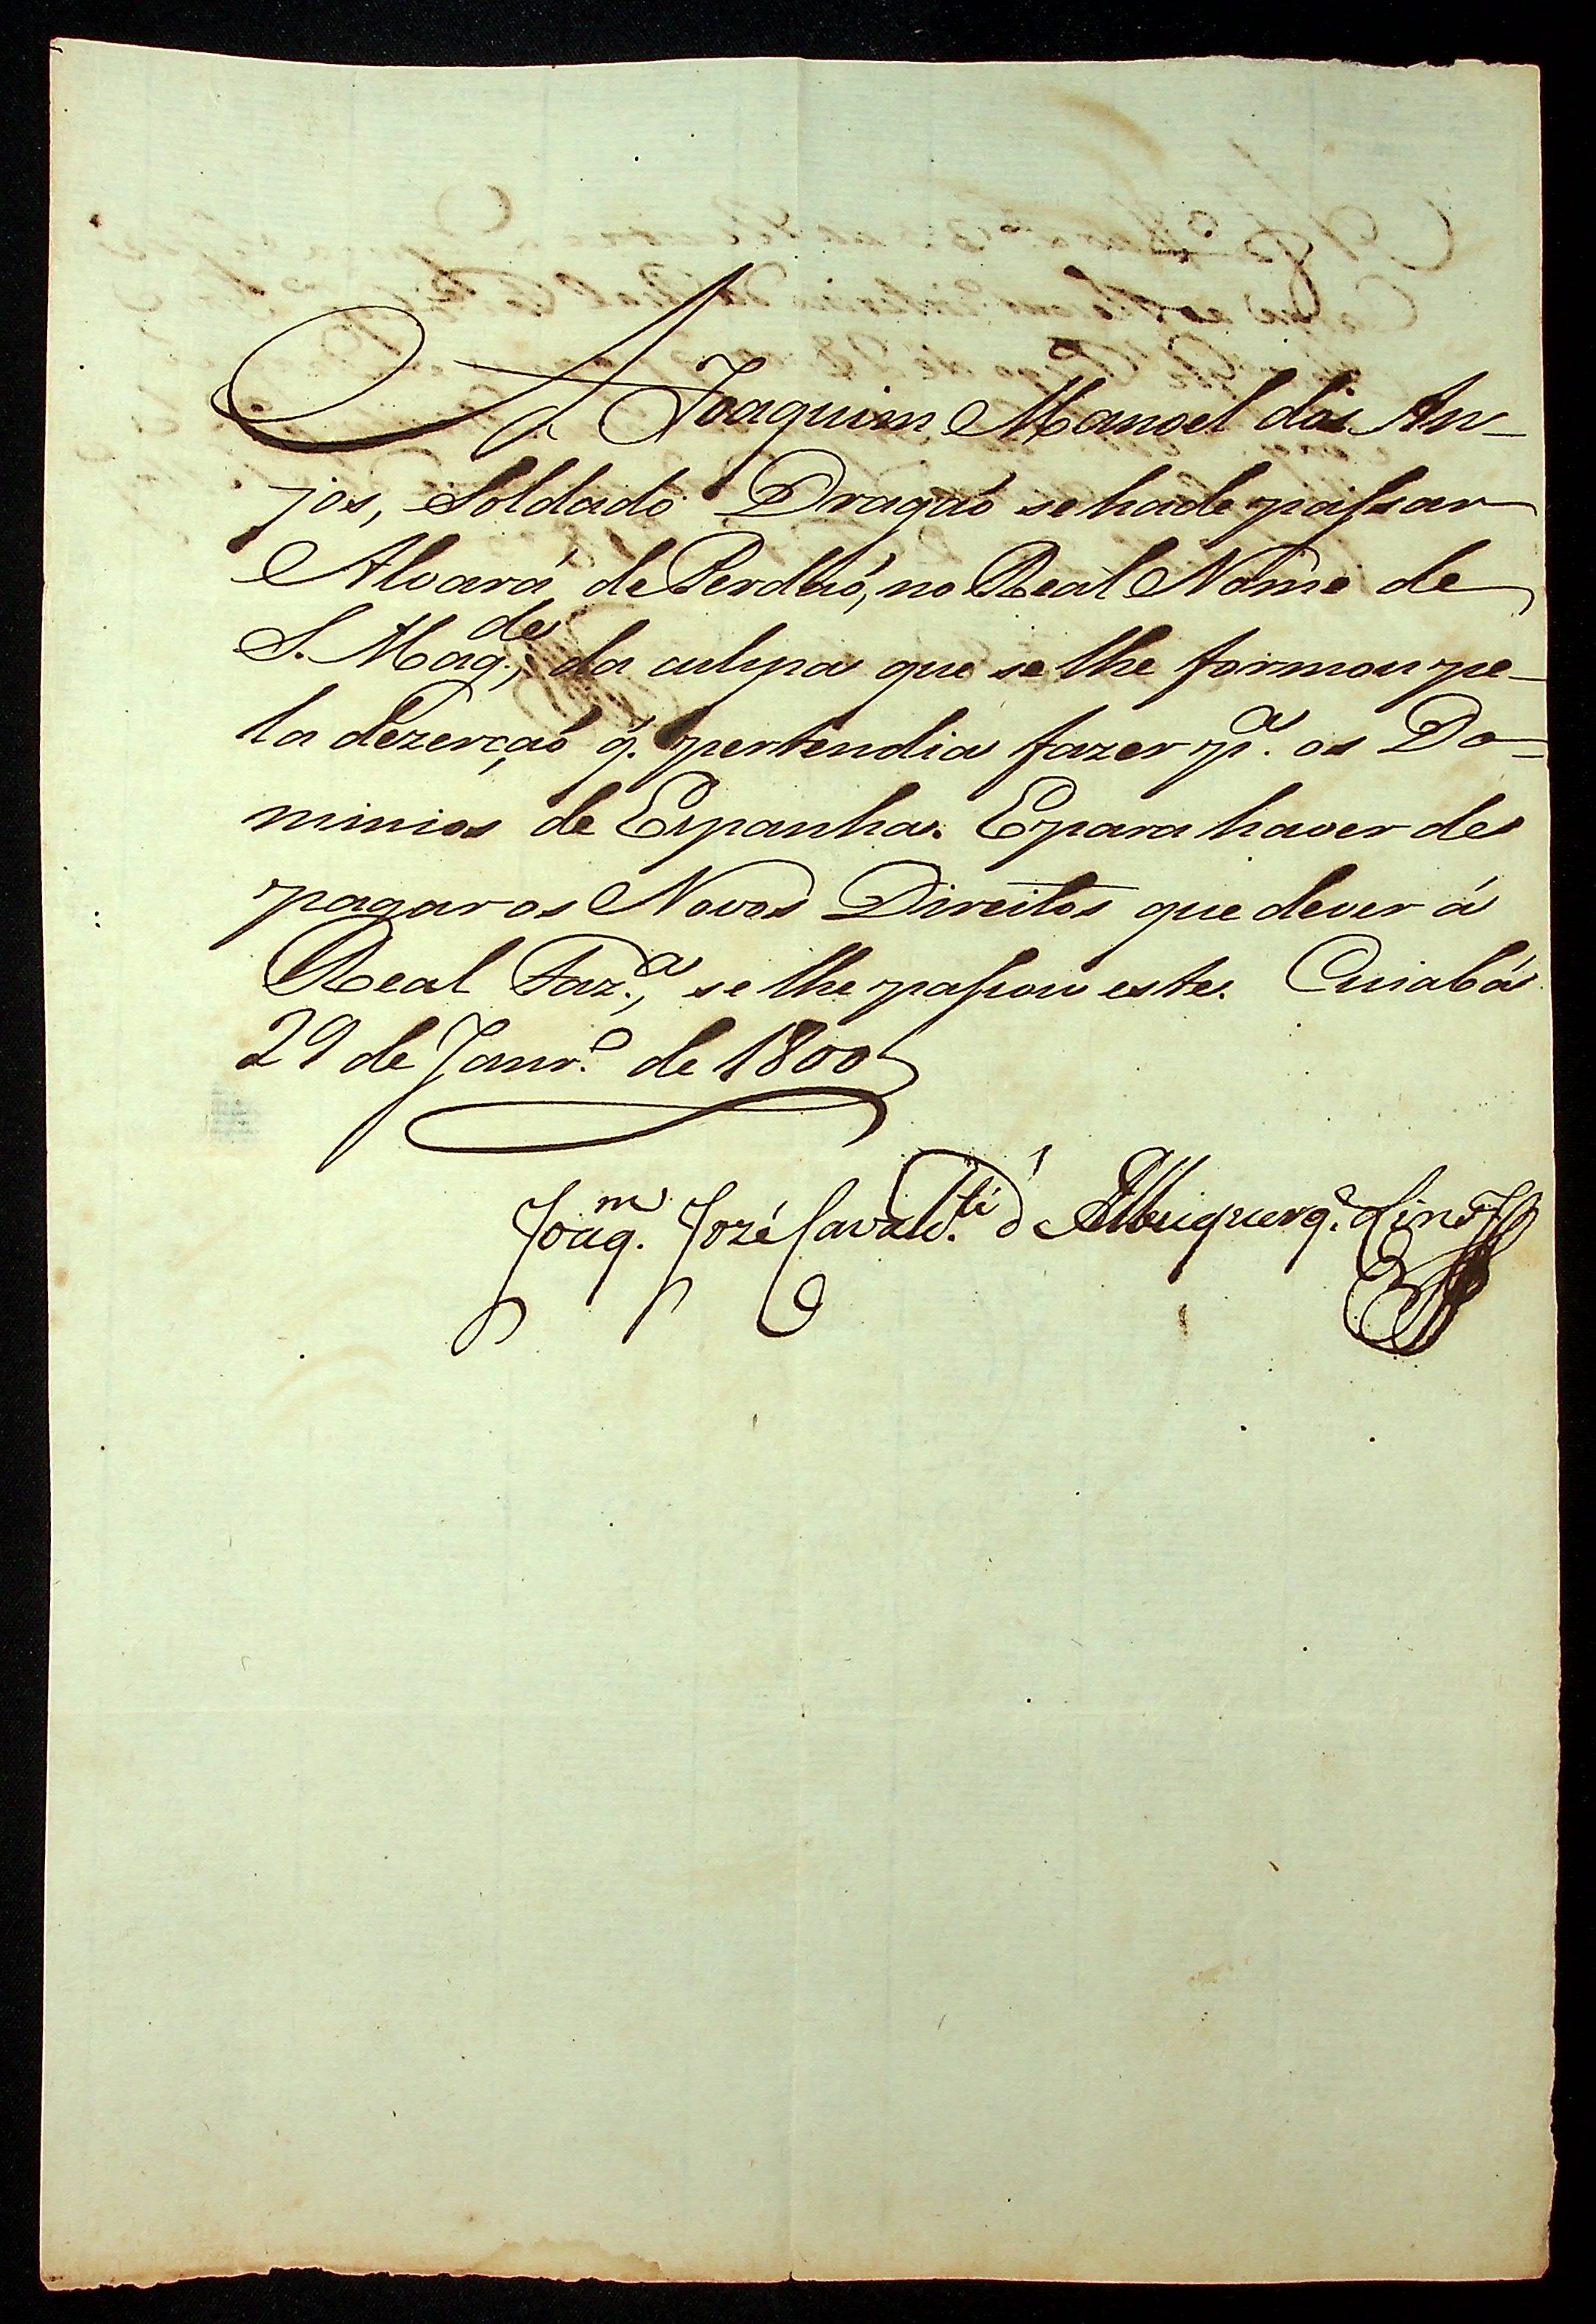 A Joaquim Manoel dos An-
jos, Soldado Dragaõ se hade passar
Alvará de Perdaõ, no Real Nome de
S. Mag.de, da culpa que se lhe formou pe-
la dezerçaõ q̃. pertendia fazer p.a os Do-
minios de Espanha. E para haver de
pagar os Novos Direitos que dever á
Real Faz.a, se lhe passou este. Cuiabá
29 de Janr.o de 1800
Joaq.m José Cavalc.ti d'Albuquerq.e Lins